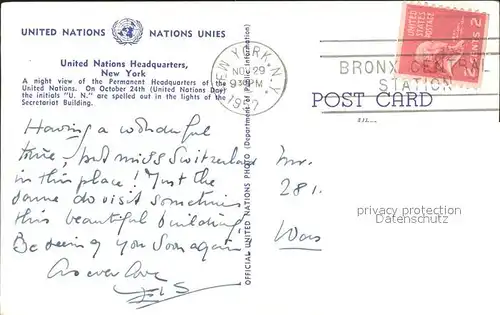 UNITED NATIONS NATIONS UNIES
United Nations Headquarters,
New York
A night view of the Permanent Headquarters of the
United Nations. On October 24th (United Nations Day)
the initials "U. N." are spelled out in the lights of the
Secretariat Building.
NEW YORK, N.Y.
NOV 29
9 PM
BRONX CENTRAL
STATION
UNITED STATES POSTAGE
2 CENTS 2
POST CARD
OFFICIAL UNITED NATIONS PHOTO (Department of Public Information)
Having a wonderful
time, but miss Switzerland
in this place! Just the
same do visit sometimes
this beautiful building.
Be seeing you soon again,
As ever Love
Mr.
281.
privacy protection
Datenschutz